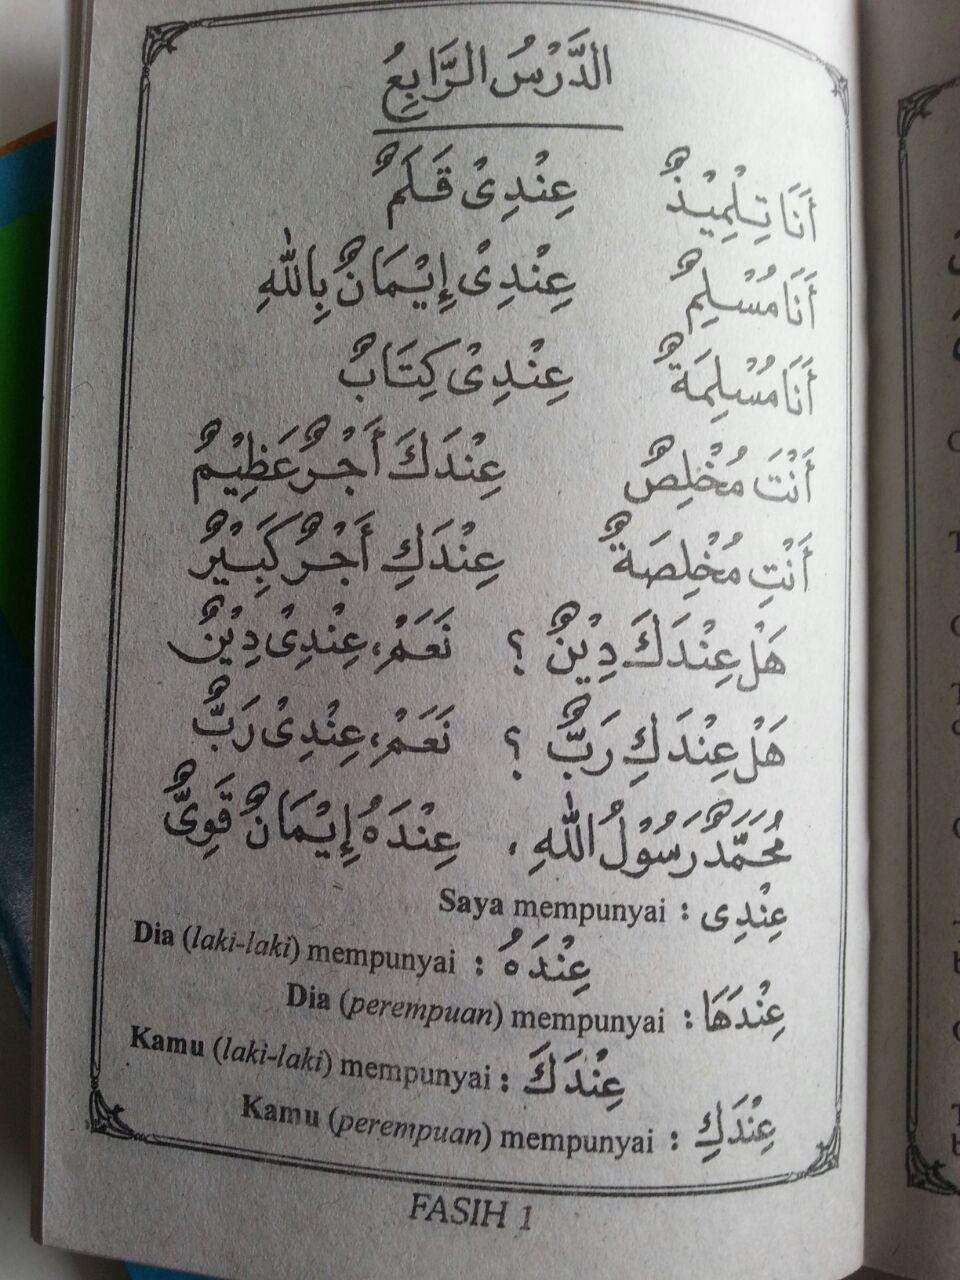 الدَّرْسُ الرَّابِعُ
أَنَا تِلْمِيْذٌ عِنْدِيْ قَلَمٌ
أَنَا مُسْلِمٌ عِنْدِيْ إِيْمَانٌ بِاللهِ
أَنَا مُسْلِمَةٌ عِنْدِيْ كِتَابٌ
أَنْتَ مُخْلِصٌ عِنْدَكَ أَجْرٌ عَظِيْمٌ
أَنْتِ مُخْلِصَةٌ عِنْدَكِ أَجْرٌ كَبِيْرٌ
هَلْ عِنْدَكَ دِيْنٌ ؟ نَعَمْ، عِنْدِيْ دِيْنٌ
هَلْ عِنْدَكِ رَبٌّ ؟ نَعَمْ، عِنْدِيْ رَبٌّ
مُحَمَّدٌ رَسُوْلُ اللهِ ، عِنْدَهُ إِيْمَانٌ قَوِيٌّ
عِنْدِى : Saya mempunyai
عِنْدَهُ : Dia (laki-laki) mempunyai
عِنْدَهَا : Dia (perempuan) mempunyai
عِنْدَكَ : Kamu (laki-laki) mempunyai
عِنْدَكِ : Kamu (perempuan) mempunyai
FASIH 1